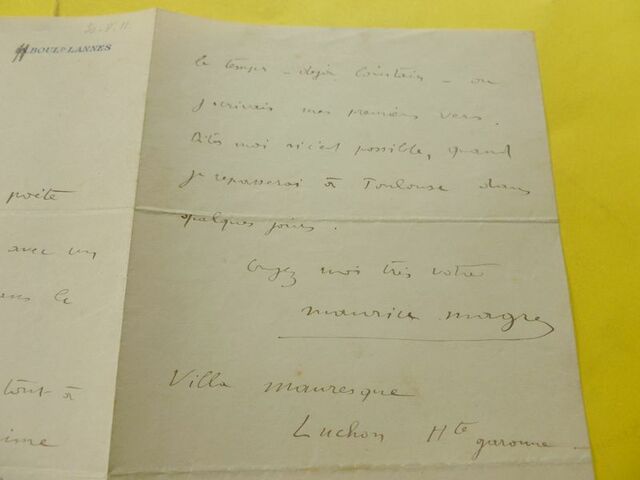 BOULD LANNES
poète
avec un
ans le
tout à
le temps - déjà lointain - où
j'écrivais mes premiers vers.
Dites moi si c'est possible, quand
je repasserai à Toulouse dans
quelques jours.
Croyez moi très votre
maurice magre
Villa mauresque
Luchon Hte garonne